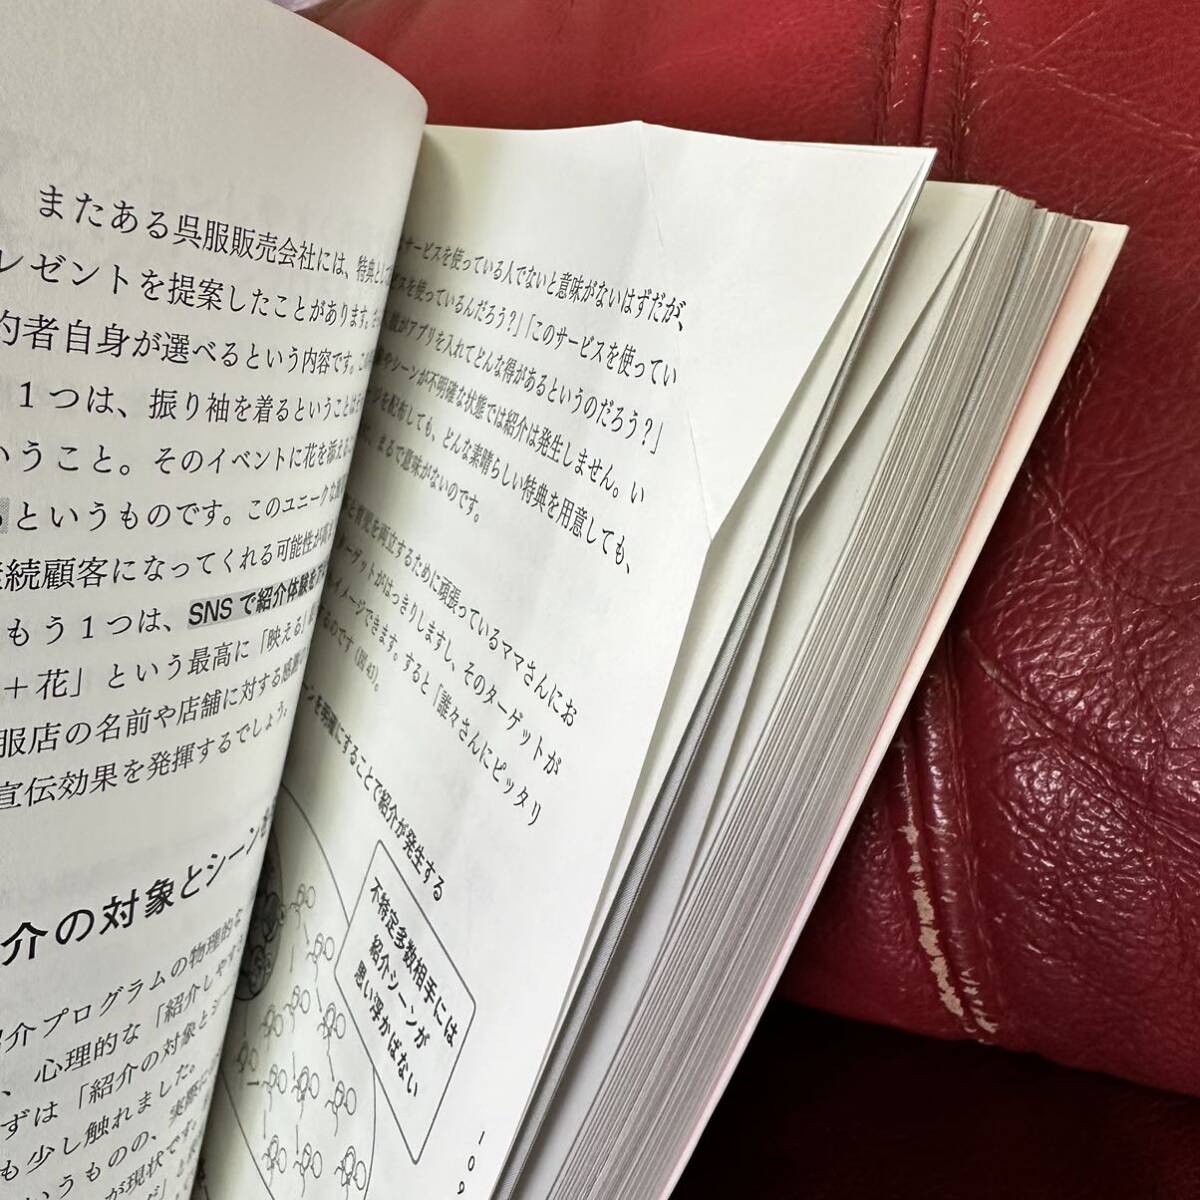 またある呉服販売会社には、特典とし
レゼントを提案したことがあります。
約者自身が選べるという内容です。
1つは、振り袖を着るということは
いうこと。そのイベントに花を添える
というものです。このユニークな
継続顧客になってくれる可能性が高
もう1つは、SNSで紹介体験を
＋花」という最高に「映える」
服店の名前や店舗に対する感謝
宣伝効果を発揮するでしょう。
介の対象とシーン
紹介プログラムの物理的な
、心理的な「紹介しやす
ずは「紹介の対象とシ
も少し触れました。
いうものの、実際に
が現状です。
サービスを使っている人でないと意味がないはずだが、
ビスを使っているんだろう？」「このサービスを使ってい
がアプリを入れてどんな得があるというのだろう？」
やシーンが不明確な状態では紹介は発生しません。い
ジを配布しても、どんな素晴らしい特典を用意しても、
、まるで意味がないのです。
と育児を両立するために頑張っているママさんにお
ターゲットがはっきりしますし、そのターゲットが
イメージできます。すると「誰々さんにピッタリ
するのです（図43）。
ーンを明確にすることで紹介が発生する
不特定多数相手には
紹介シーンが
思い浮かばない
109